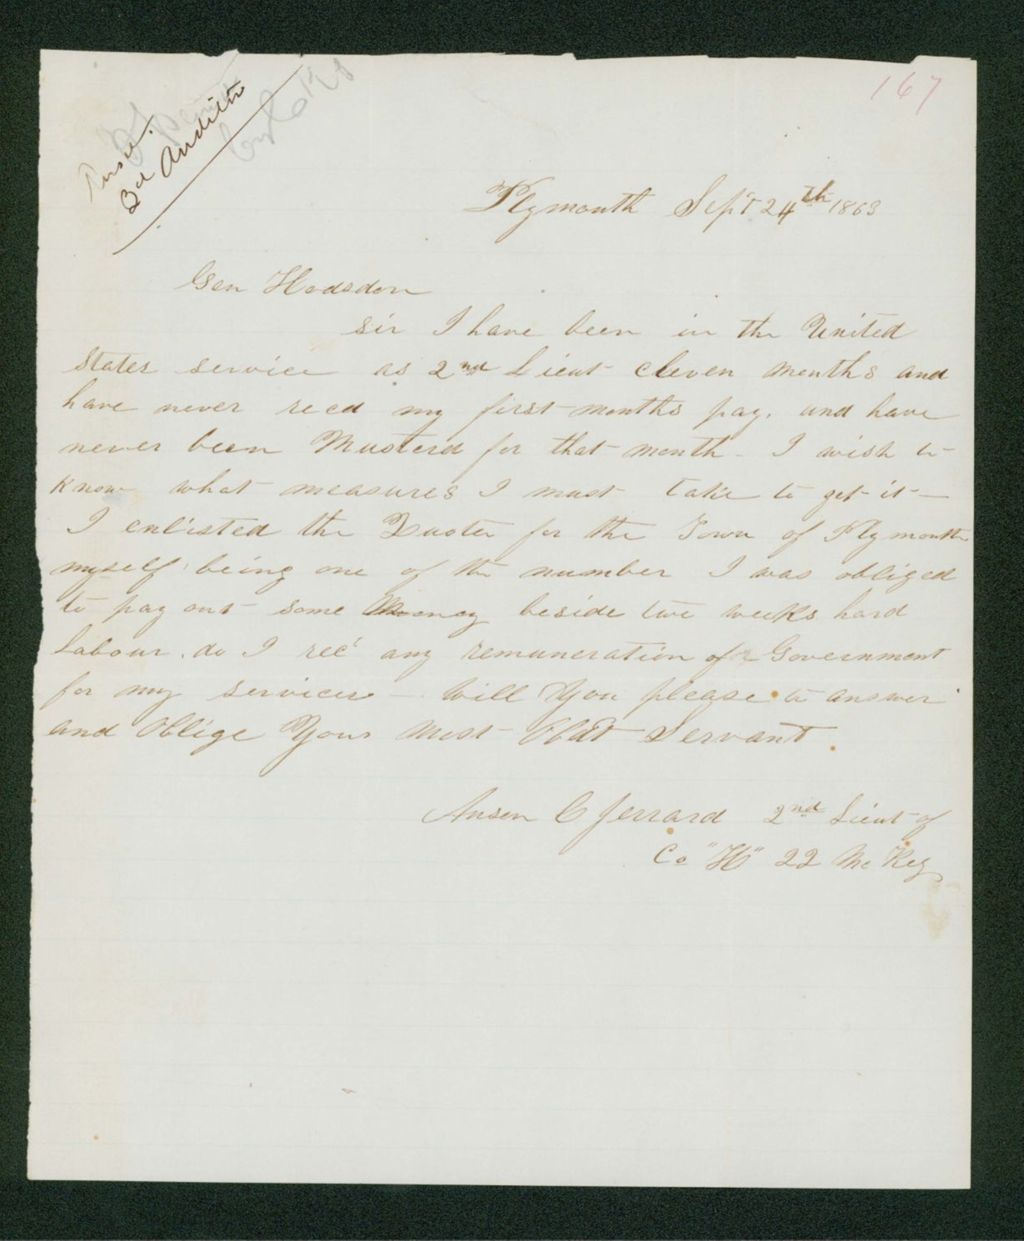 167
2d Auditor
Plymouth Sept 24th 1863
Gen Hodsdon
Sir I have been in the United
States service as 2nd Lieut eleven months and
have never recd my first months pay. and have
never been Musterd for that month - I wish to
know what measures I must take to get it -
I enlisted the Quoter for the Town of Plymouth
myself being one of the number I was obliged
to pay out some Money beside two weeks hard
Labour. do I rec' any remuneration of Government
for my services - Will You please to answer
and Oblige Your Most Obdt Servant.
Anson C Jerrard 2nd Lieut of
Co "H" 22 Me Reg